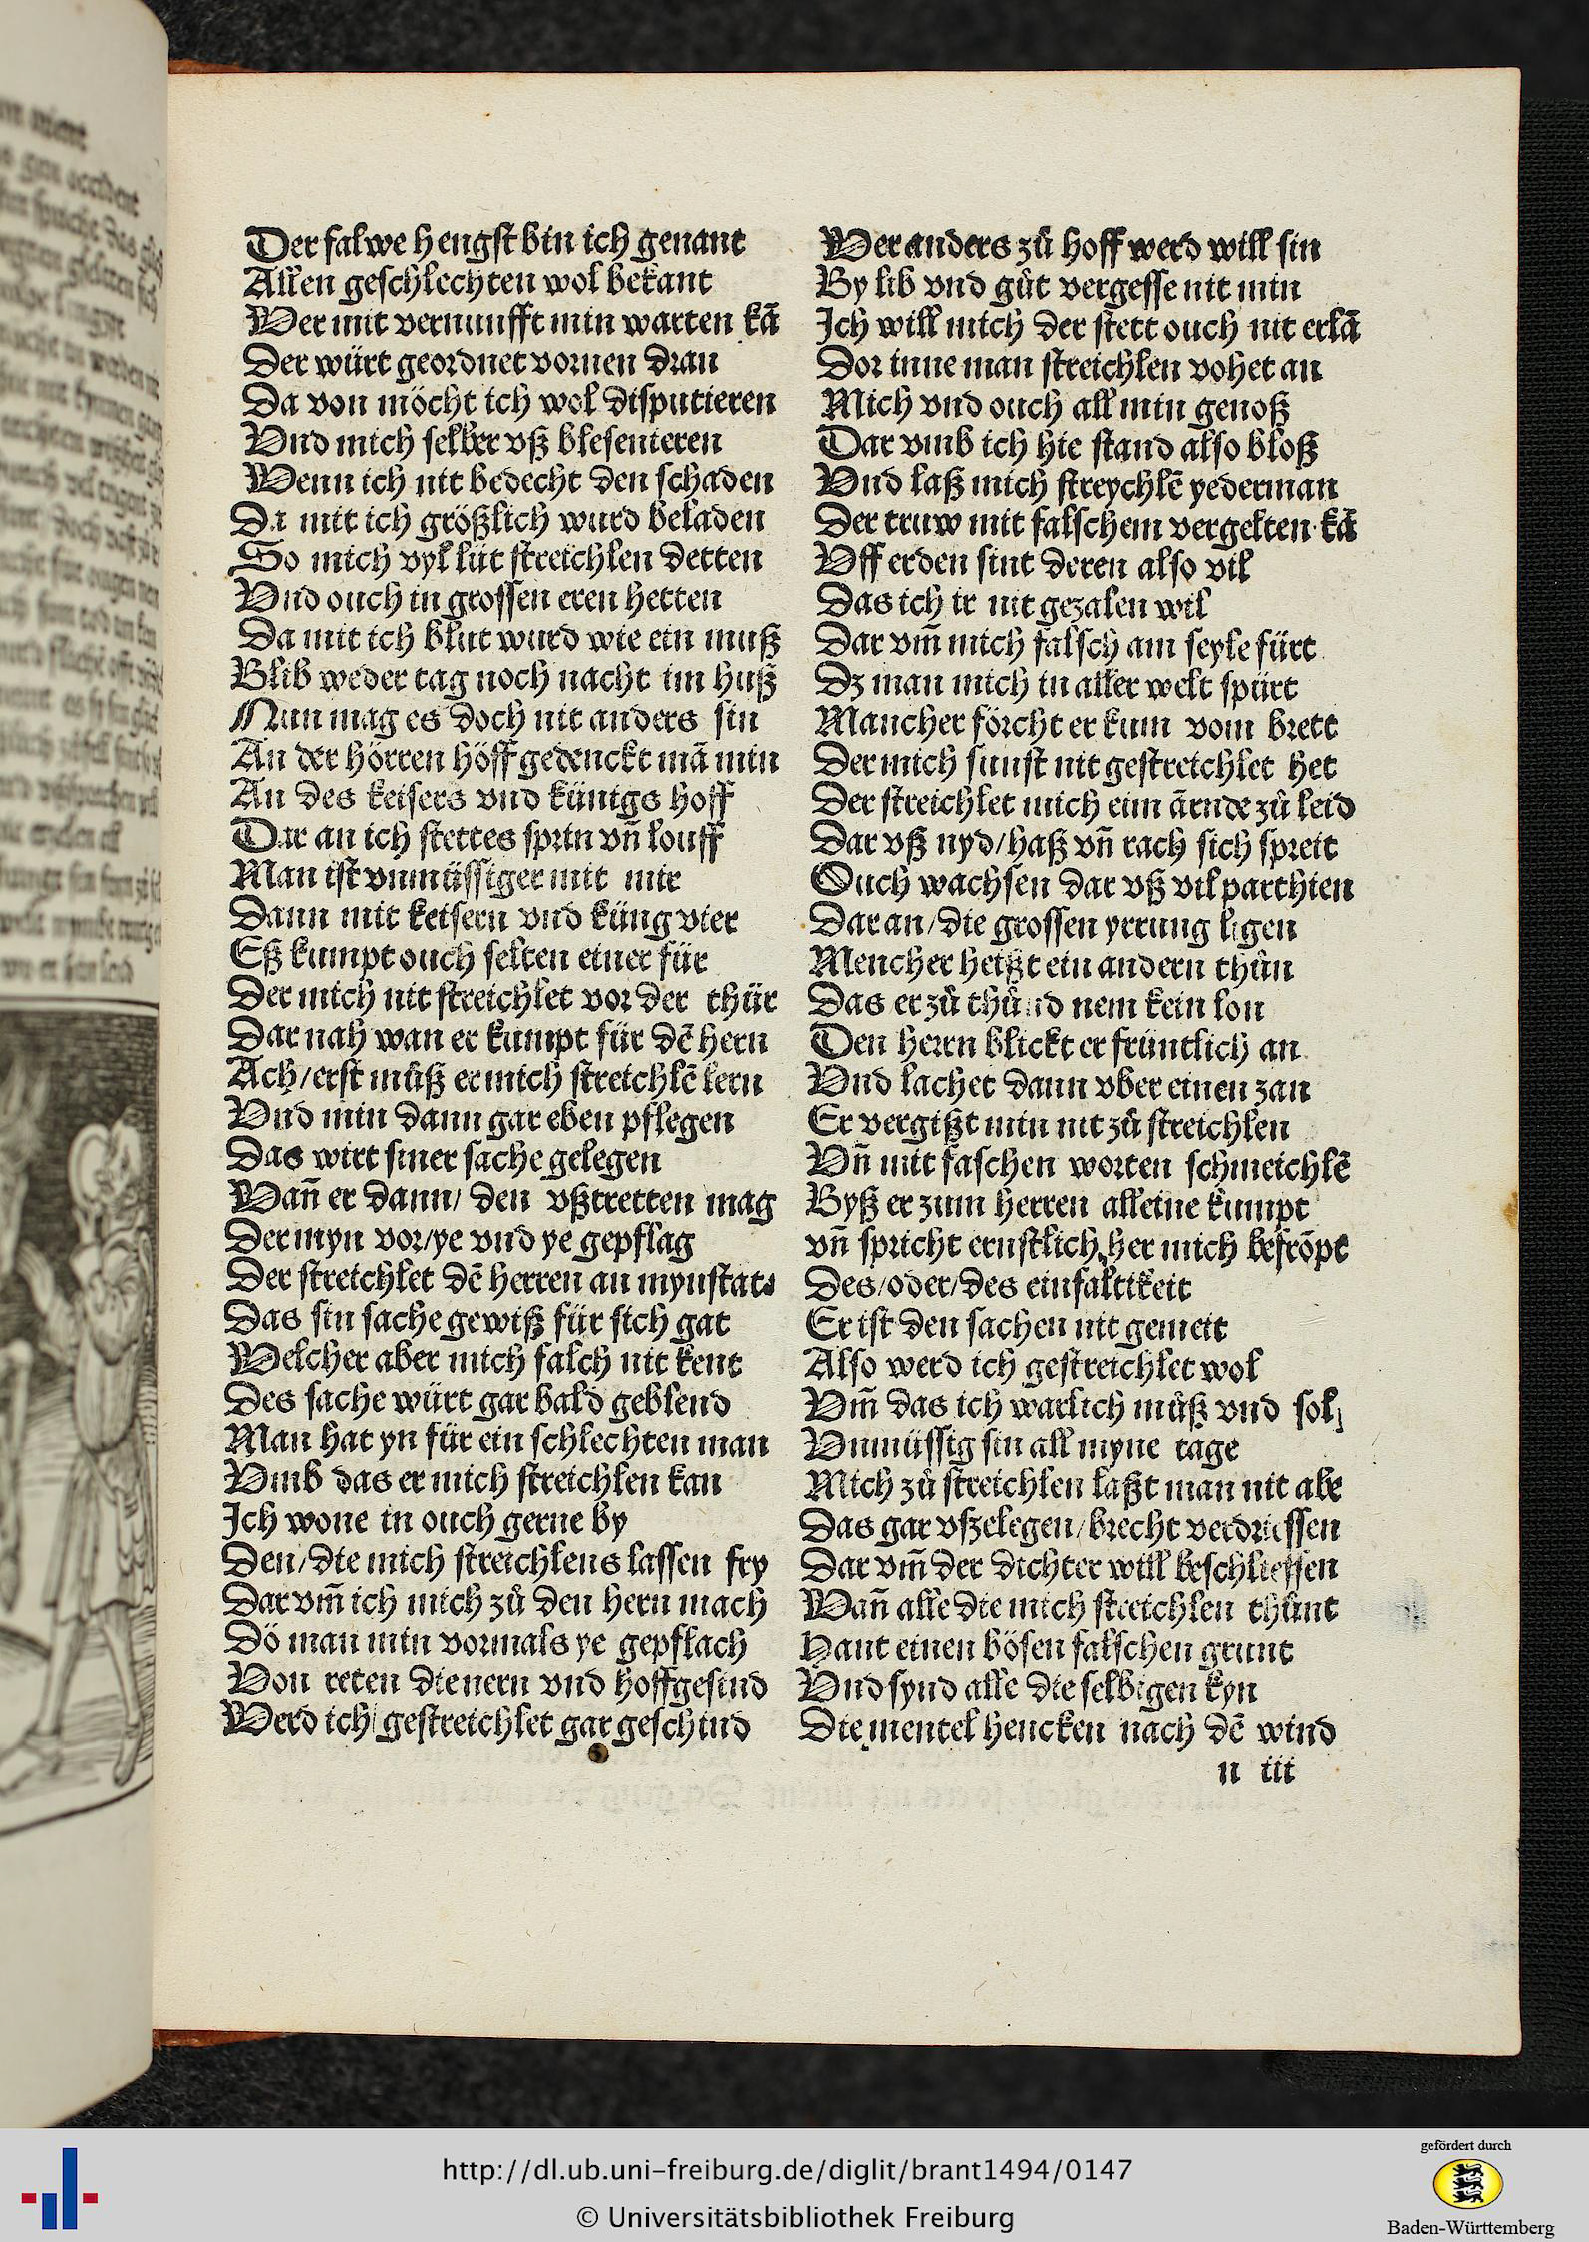 Der falwe hengst bin ich genant
Allen geschlechten wol bekant
Wer mit vernunfft min warten kā
Der würt geordnet vornen dran
Da von möcht ich wol disputieren
Vnd mich selber vß blesenieren
Wenn ich nit bedecht den schaden
Da mit ich größlich wurd beladen
So mich vyl lüt streichlen detten
Vnd ouch in grossen eren hetten
Da mit ich blut wurd wie ein muß
Blib weder tag noch nacht im huß
Nun mag es doch nit anders sin
An der hörren höff gedenckt mā min
An des keisers vnd künigs hoff
Dar an ich stettes sprin vn̄ louff
Man ist vnmüssiger mit mir
Dann mit keisern vnd küng vier
Eß kumpt ouch selten einer für
Der mich nit streichlet vor der thür
Dar nah wan er kumpt für dē hern
Ach/erst můß er mich streichlē lern
Vnd min dann gar eben pflegen
Das wirt siner sache gelegen
Wan̄ er dann/ den vßtretten mag
Der myn vor/ye vnd ye gepflag
Der streichlet dē herren an mynstat
Das sin sache gewiß für sich gat
Welcher aber mich falch nit kent
Des sache würt gar bald geblend
Man hat yn für ein schlechten man
Vmb das er mich streichlen kan
Ich wone in ouch gerne by
Den/die mich streichlens lassen fry
Dar vm̄ ich mich zů den hern mach
Dö man min vormals ye gepflach
Von reten dienern vnd hoffgesind
Werd ich gestreichlet gar geschind
Wer anders zů hoff werd will sin
By lib vnd gůt vergesse nit min
Ich will mich der stett ouch nit erlā
Dor inne man streichlen vohet an
Mich vnd ouch all min genoß
Dar vmb ich hie stand also bloß
Vnd laß mich streychlē yederman
Der truw mit falschem vergelten kā
Vff erden sint deren also vil
Das ich ir nit gezalen wil
Dar vm̄ mich falsch am seyle fürt
Dz man mich in aller welt spürt
Mancher förcht er kum vom brett
Der mich sunst nit gestreichlet het
Der streichlet mich eim ārnde zů leid
Dar vß nyd/haß vn̄ rach sich spreit
Ouch wachsen dar vß vil parthien
Dar an/die grossen yrrung ligen
Mencher heißt ein andern thůn
Das er zů thůnd nem kein lon
Den herrn blickt er früntlich an
Vnd lachet dann vber einen zan
Er vergißt min nit zů streichlen
Vn̄ mit faschen worten schmeichlē
Byß er zum herren alleine kumpt
vn̄ spricht ernstlich her mich befrōpt
Des/oder/des einfaltikeit
Er ist den sachen nit gemeit
Also werd ich gestreichlet wol
Vm̄ das ich warlich můß vnd sol
Vnmüssig sin all myne tage
Mich zů streichlen laßt man nit abe
Das gar vßzelegen/brecht verdriessen
Dar vm̄ der dichter will beschliessen
Wan̄ alle die mich streichlen thůnt
Hant einen bösen falschen grunt
Vnd synd alle die selbigen kyn
Die mentel hencken nach dē wind
n iii
http://dl.ub.uni-freiburg.de/diglit/brant1494/0147
© Universitätsbibliothek Freiburg
gefördert durch
Baden-Württemberg